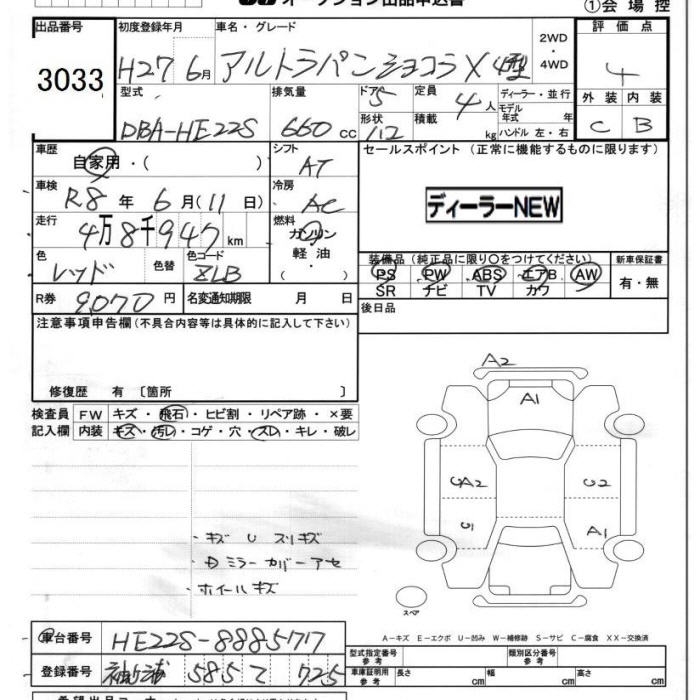 オークション出品申込書 ①会場控
出品番号 初度登録年月 車名・グレード 2WD・4WD 評価点
3033 H27 6月 アルトラパンショコラ X 4型 4
型式 排気量 ドア 5 定員 4人 ディーラー・並行 外装 内装
DBA-HE22S 660 cc 形状 積載 kg モデル年式 年 ハンドル 左・右 C B
車歴 自家用・( ) シフト AT セールスポイント (正常に機能するものに限ります)
車検 R8 年 6月(11日) 冷房 AC
ディーラーNEW
走行 4万8千947km 燃料 ガソリン・軽油・( )
装備品(純正品に限り○をつけてください) 新車保証書
色 レッド 色替 色コード ZLB PS PW ABS エアB AW 有・無
SR ナビ TV カワ
R券 9070円 名変通知期限 月 日 後日品
注意事項申告欄(不具合内容等は具体的に記入して下さい)
修復歴 有 〔箇所 〕
検査員 FW キズ・飛石・ヒビ割・リペア跡・×要
記入欄 内装 キズ・汚レ・コゲ・穴・スレ・キレ・破レ
・キズ U スリキズ
・ミラーカバー アセ
ホイールキズ
A2
A1
UA2 U2
U1 A1
スペア
A−キズ E−エクボ U−凹み W−補修跡 S−サビ C−腐食 XX−交換済
車台番号 HE22S-8885717 型式指定番号 参考 類別区分番号 参考
登録番号 袖ヶ浦 585 て 725 車庫証明用 参考 長さ cm 幅 cm 高さ cm